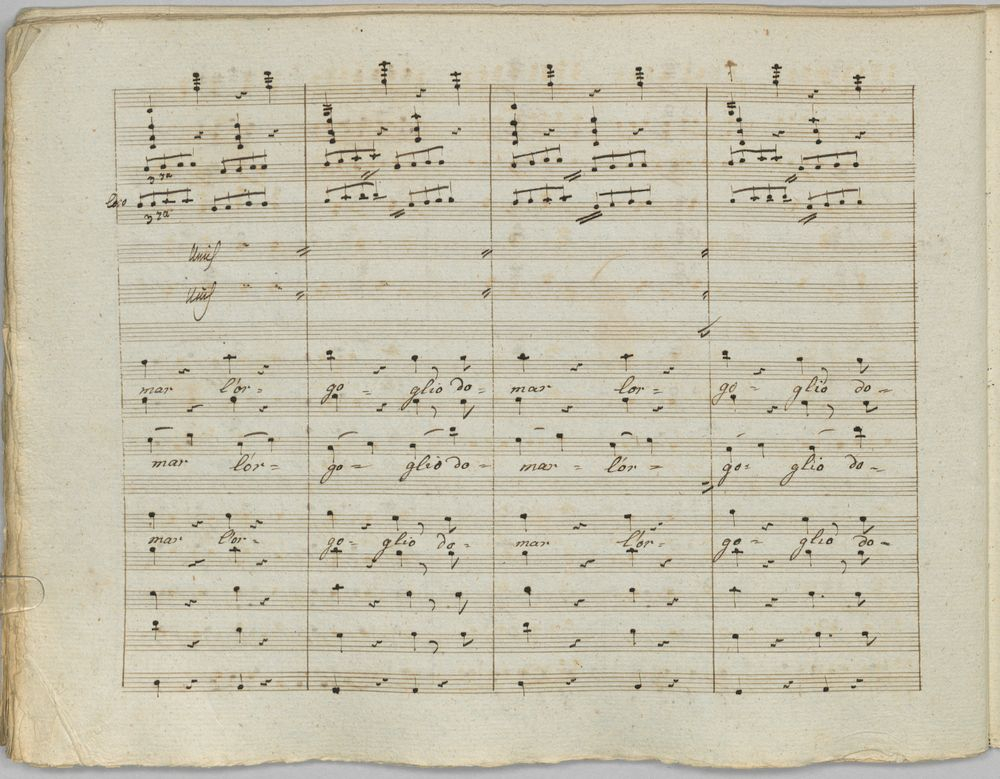 3 za
3 za
Unis
Unis
mar l'or = go = glio do = mar lor = go = glio do =
mar l'or = go = glio do = mar = l'or = go = glio do =
mar l'or = go = glio do = mar l'or = go = glio do =